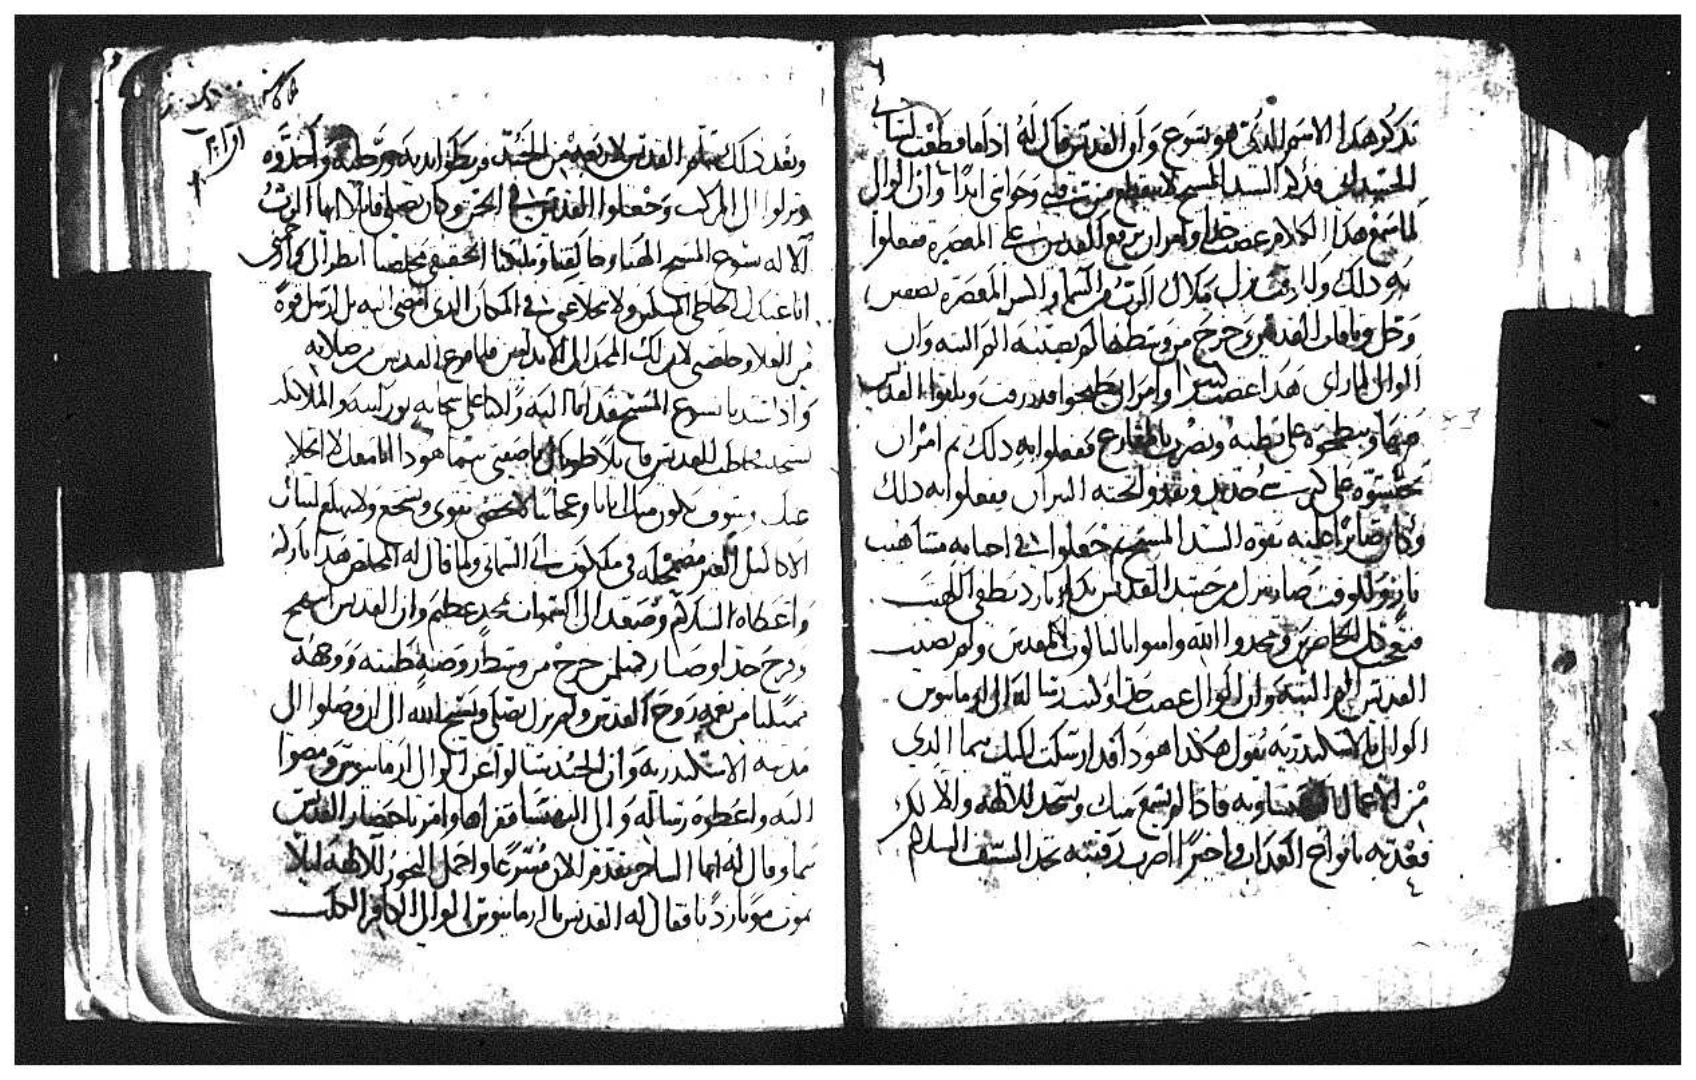 تذكر هذا الاسم الذي هو يسوع وان القديس قال له اذا ما قطعت لساني
الجسداني فذكر السيد المسيح لا ينقطع من قلبي وحواي ابدا وان الوالي
لما سمع هذا الكلام غضب جدا وامر ان يرفع القديس على المعصره ففعلوا
به ذلك وللوقت نزل ملاك الرب من السما وكسر المعصره نصفين
وحل وثاقات القديس وخرج من وسطها لم يصيبه الم البته وان
الوالي لما راى هذا غضب كثيرا وامر ان زفت ويلقوا القديس
فيها ويبطحوه على بطنه ويضرب بالمقارع ففعلوا به ذلك ثم امر ان
يجلسوه على كرسي حديد ويقدوا تحته النيران ففعلوا به ذلك
وكان صابرا بقوه السيد المسيح ثم جعلوا في اجنابه مشاهيب
نار وللوقت صار ينزل من جسد القديس ندا بارد يطفي اللهيب
فتعجب كل الحاضرين ومجدوا الله وامنوا بالثالوث المقدس ولم يصيب
القديس الم البته وان الوالي غضب جدا وكتب رساله الى ارمانيوس
الوالي بالاسكندريه يقول هكذا هوذا قد ارسلت اليك بيما الذي
من اعمال البهنساويه فاذا لم يسمع منك ويسجد للالهه والا
فعذبه بانواع العذاب واخيرا اضرب رقبته بحد السيف السلام
وبعد ذلك سلم القديس لاربعه من الجند فربطوا يديه ورجليه واخذوه
ونزلوا الى المركب وجعلوا القديس في الخن وكان يصلي قايلا ايها الرب
الاله يسوع المسيح الهنا وخالقنا وملكنا الحقيقي مخلصنا انظر الي وارحمني
انا عبدك الخاطي المسكين ولا تتخلا عني في المكان الذي امضي اليه بل ارسل قوه
من العلا وخلصني لان لك المجد الى الابد امين فلما فرغ القديس من صلاته
واذا سيدنا يسوع المسيح قد اتا اليه راكبا على سحابه نورانيه والملايكه
تسبحه فخاطب القديس قايلا طوباك يا صفيي بيما هوذا انا معك لا اتخلا
عنك وسوف يكون منك ايات وعجايبا لا تحصى تقوى وتشجع
الاكليل الغير مضمحله في ملكوت السماني ولما قال له المخلص هذا باركه
واعطاه السلام وصعد الى السموات بمجد عظيم وان القديس ابتهج
وفرح جدا وصار كمثل من خرج من وسط روضه طيبه ووجهه
ممتليا من نعمه روح القدس ولم يزل يصلي ويسبح الله الى ان وصلوا الى
مدينه الاسكندريه وان الجند سالوا عن الوالي ارمانيوس ومضوا
اليه واعطوه رساله والي البهنسا فقراها وامر باحضار القديس
بيما وقال له ايها الساحر تقدم الان مسرعا واحمل البخور للالهه ليلا
تموت موتا رديا فقال له القديس يا ارمانيوس الوالي الكافر الكلب